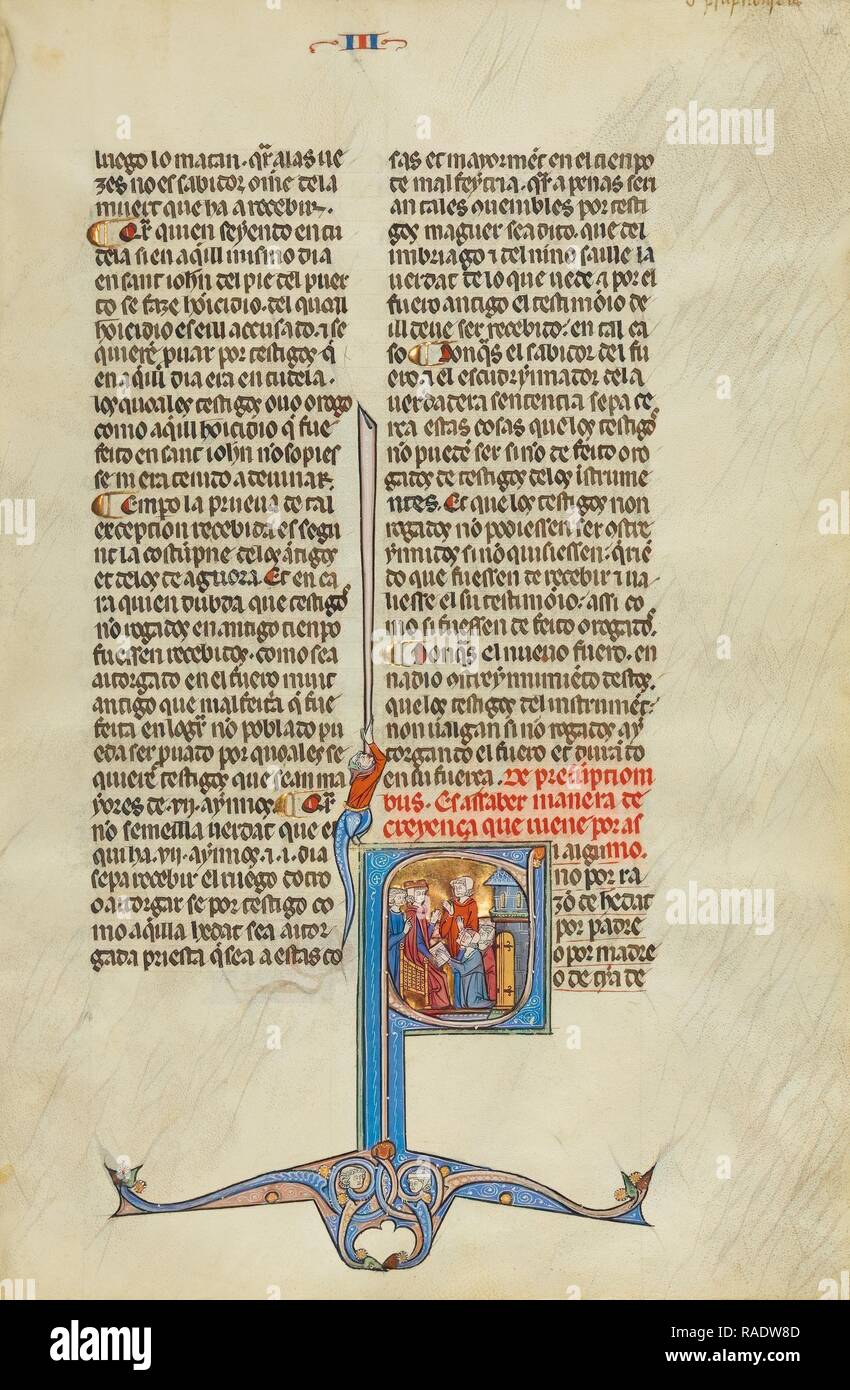 III
luego lo matan. qr̄ alas ue
zes no es sabidor om̄e dela
muert que ha a recebir.
Qr̄ quien seyendo en tu
dela si en aq̄ll mismo dia
en sant ioh̄n del pie del puer
to se faze hōicidio. del qual
hōicidio es eill accusado. ⁊ se
quiere ꝑuar por testigos q̄
en aq̄ll dia era en tudela.
los quoales testigos ouo orogo
como aq̄ll hōicidio q̄ fue
feito en sant ioh̄n no sopies
se ni era tenido a deuinar.
Tempo la prueua de tal
exception recebida es segū
nt la costūpne delos ātigos
et delos de aguora. Et en ca
ra quien dubda que testigos
no rogados en antigo tienpo
fuessen recebidos. como sea
atorgado en el fuero muit
antigo que malfeita q̄ fue
feita en logar no poblado pu
eda ser ꝑuado por quoales se
quiere testigos que sean ma
yores de .vii. aynnos. Qr̄
no semeilla uerdat que el
qui ha .vii. aynnos. ⁊ .i. dia
sepa recebir el ruego docto
o atorgar se por testigo co
mo aq̄lla hedat sea ator
gada priesta q̄ sea a estas co
sas et mayormēt en el tienpo
de malfeytria. qr̄ a penas seri
an tales ouenibles por testi
gos maguer sea dito. que del
imbriago ⁊ del nino saille la
uerdat de lo que uede. ⁊ por el
fuero antigo el testimōio de
ill deue ser recebido. en tal ca
so. Donq̄s el sabidor del fu
ero ⁊ el escudrynnador dela
uerdadera sentencia sepa de
rea estas cosas que los testigos
no puede ser sino de feito oro
gados de testigos delos īstrume
ntes. Et que los testigos non
rogados nō podiessen ser ostre
ynnidos si nō quisiessen. q̄rie
do que fuessen de recebir ⁊ ua
uesse el su testimōio. assi co
mo si fuessen de feito orogado.
Donq̄s el nueuo fuero. en
nadio ostreynnimiēto destos.
que los testigos del instrumēt.
non ualgan si no rogados ay
torgando el fuero et durādo
en su fuerça. De prescriptioni
bus. Es assaber manera de
creyença que uiene por as
i alguno.
no por ra
zō de hedat
por padre
o por madre
o de q̄ra de
alamy stock photo
RADW8D
www.alamy.com